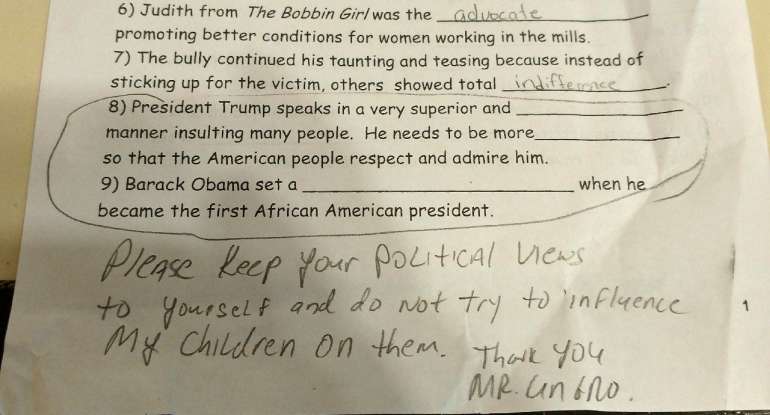 6) Judith from The Bobbin Girl was the advocate
promoting better conditions for women working in the mills.
7) The bully continued his taunting and teasing because instead of
sticking up for the victim, others showed total indifference.
8) President Trump speaks in a very superior and ____________
manner insulting many people. He needs to be more____________
so that the American people respect and admire him.
9) Barack Obama set a ____________________ when he
became the first African American president.
Please keep your political views
to yourself and do not try to influence
1
My children on them. Thank you
MR.